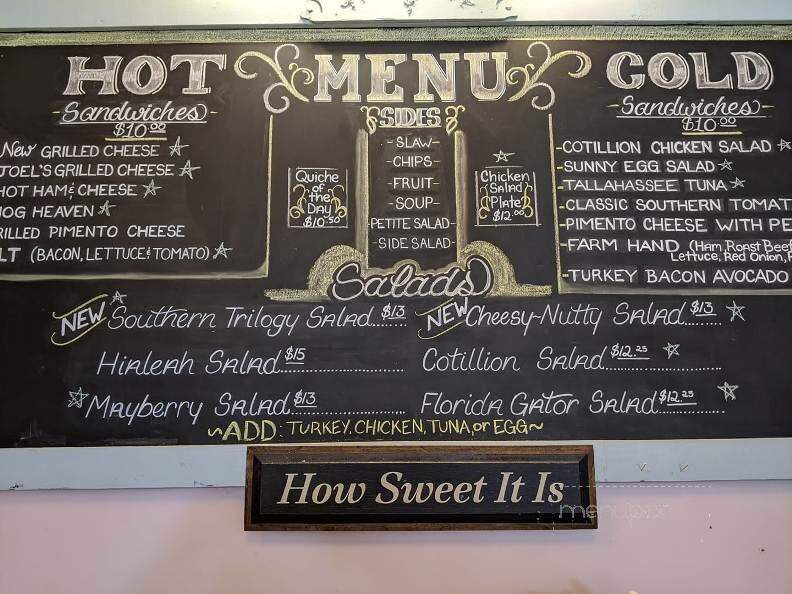 HOT
Sandwiches
$10.00
New GRILLED CHEESE
JOEL'S GRILLED CHEESE
HOT HAM & CHEESE
HOG HEAVEN
GRILLED PIMENTO CHEESE
BLT (BACON, LETTUCE & TOMATO)
MENU
SIDES
-SLAW-
-CHIPS-
-FRUIT-
-SOUP-
-PETITE SALAD-
-SIDE SALAD-
Quiche
of
the
Day
$10.50
Chicken
Salad
Plate
$12.00
COLD
Sandwiches
$10.00
-COTILLION CHICKEN SALAD
-SUNNY EGG SALAD
-TALLAHASSEE TUNA
-CLASSIC SOUTHERN TOMAT
-PIMENTO CHEESE WITH PE
-FARM HAND (Ham, Roast Beef
Lettuce, Red Onion,
-TURKEY BACON AVOCADO
Salads
NEW Southern Trilogy Salad $13
NEW Cheesy-Nutty Salad $13
Hialeah Salad $15
Cotillion Salad $12.25
Mayberry Salad $13
Florida Gator Salad $12.25
~ADD: TURKEY, CHICKEN, TUNA, or EGG~
How Sweet It Is
menupix